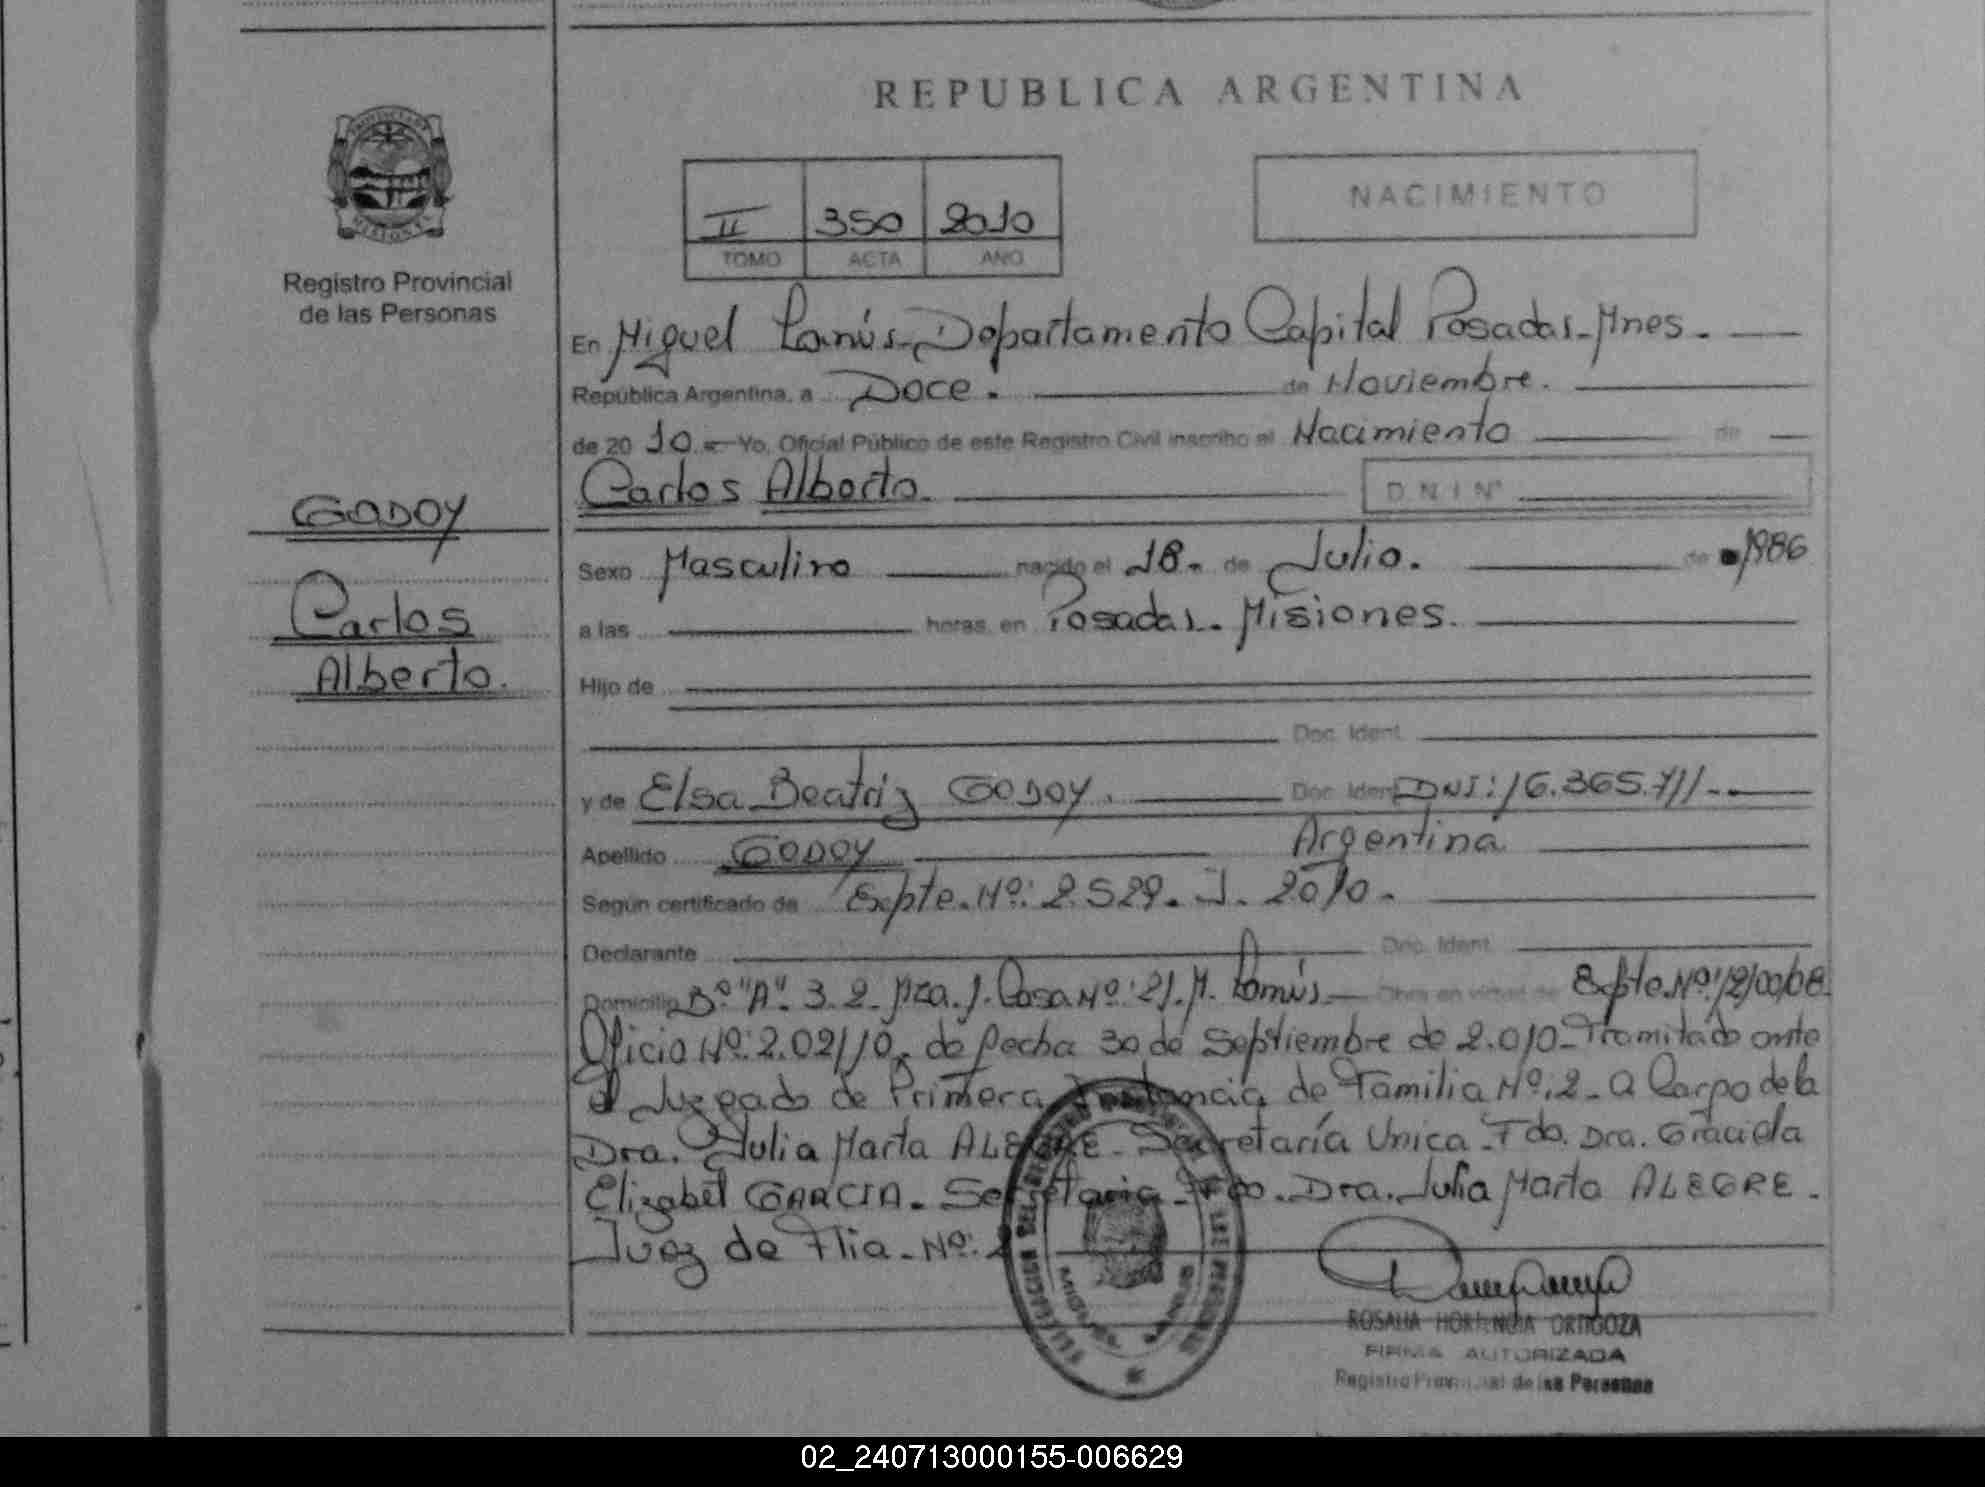 REPUBLICA ARGENTINA
NACIMIENTO
II 350 2010
TOMO ACTA AÑO
Registro Provincial
de las Personas
GODOY
Carlos
Alberto.
En Miguel Lanús - Departamento Capital Posadas - Mnes.
República Argentina, a Doce. de Noviembre.
de 20 10.- Yo, Oficial Público de este Registro Civil inscribo el Nacimiento de
Carlos Alberto. D.N.I Nº
Sexo Masculino nacido el 18. de Julio. de 1986
a las horas, en Posadas - Misiones.
Hijo de
Doc. Ident.
y de Elsa Beatriz GODOY. Doc. Ident. DNI: 16.365.711.-
Apellido GODOY Argentina
Según certificado de Expte. Nº: 2.529. J. 2010.
Declarante Doc. Ident.
Domicilio Bº "A" 3.2. Mza. J. Casa Nº: 21. M. Lanús Obra en virtud de Expte. Nº
Oficio Nº: 2.021/10. de fecha 30 de Septiembre de 2.010 - Tramitado ante
el Juzgado de Primera Instancia de Familia Nº: 2 - a Cargo de la
Dra. Julia Marta ALEGRE - Secretaría Unica - Fdo. Dra. Graciela
Elizabet GARCIA. Secretaria - Fdo. Dra. Julia Marta ALEGRE.
Juez de Flia - Nº: 2
ROSALIA HORTENCIA ORTIGOZA
FIRMA AUTORIZADA
Registro Provincial de las Personas
02_240713000155-006629